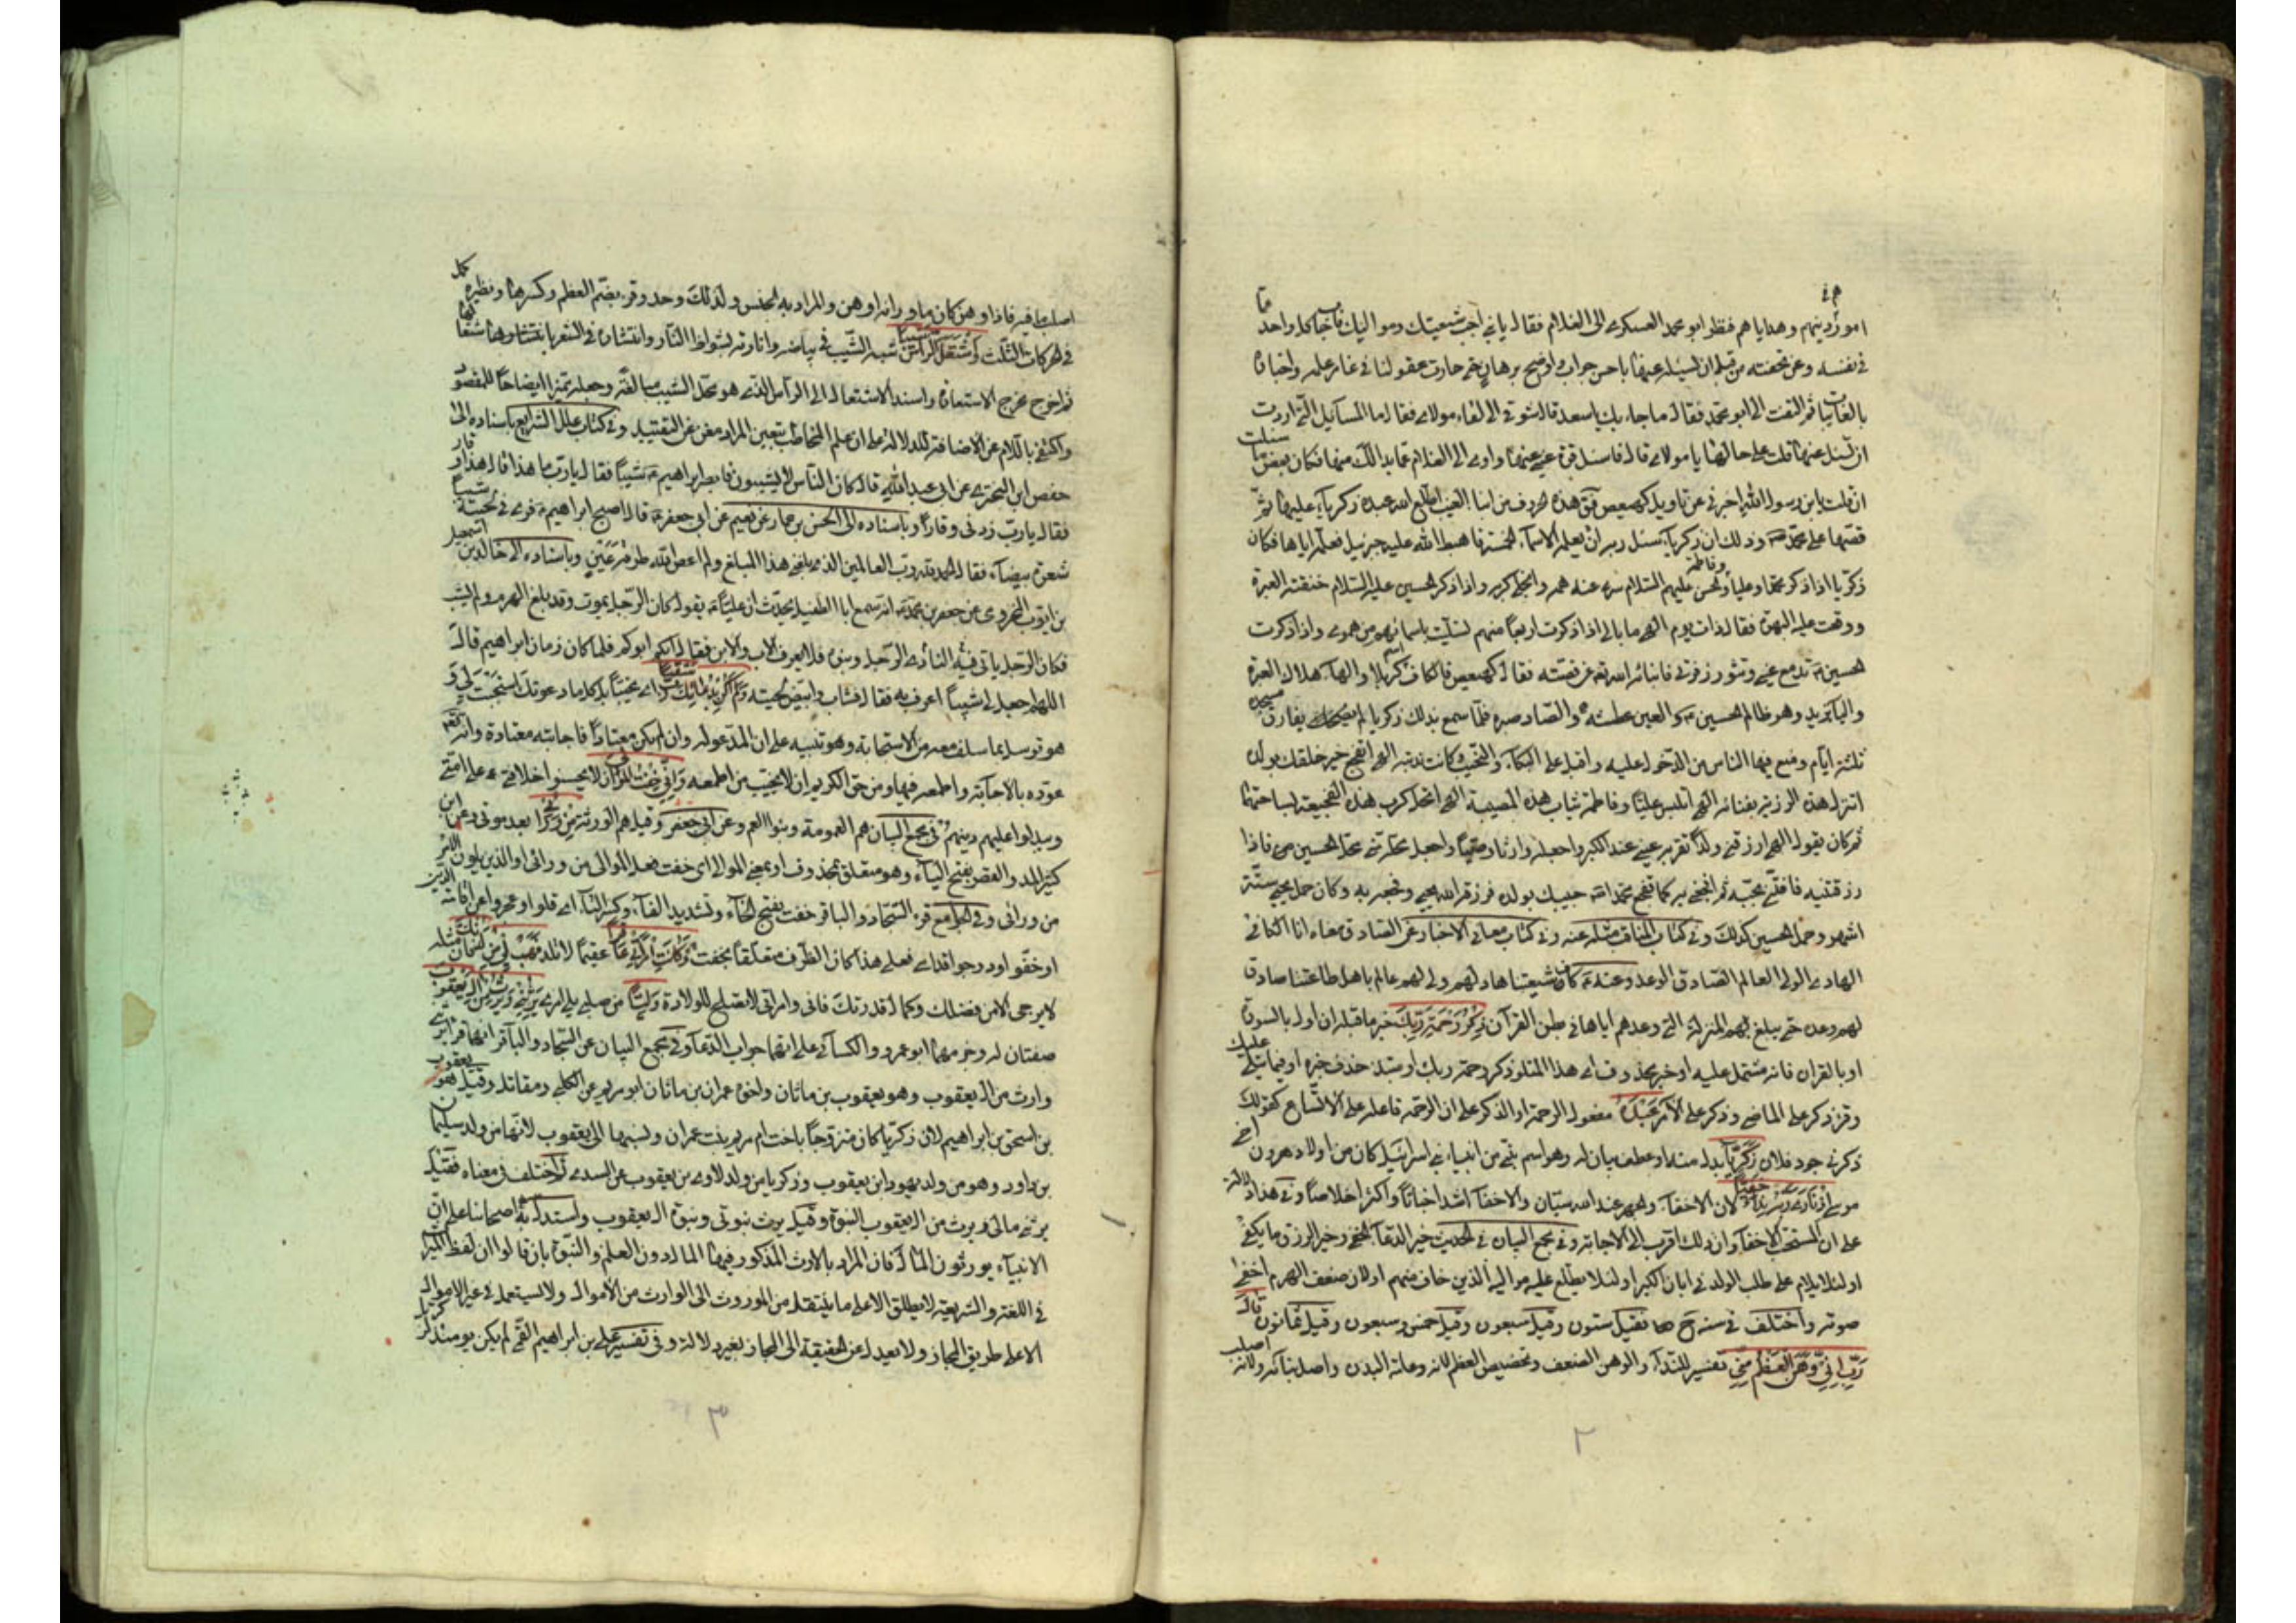 امور دينهم وهداياهم فنظر ابو محمد العسكري الى الغلام فقال يا بني اجب شيعتك ومواليك فاجاب كل واحد عما
في نفسه وعن تحفته من قبل ان يسئله عنها باحسن جواب واوضح برهان حتى حارت عقولنا في غامر علمه واخباره
بالغايبات ثم التفت الى ابو محمد فقال ما جاء بك يا سعد قال شوقي الى لقاء مولاي فقال ما المسآئل التي اردت
ان تسئل عنها قلت على حالها يا مولاي قال فاسئل قرة عيني عنها واومى الى الغلام عما بدا لك منها فكان بعض ما سئلت
ان قلت يا بن رسول الله اخبرني عن تاويل كهيعص قال هذه الحروف من انباء الغيب اطلع الله عبده زكريا عليها ثم
قصها على محمد ص وذلك ان زكريا سئل ربه ان يعلمه الاسمآء الخمسة فاهبط الله عليه جبرئيل فعلمه اياها فكان
زكريا اذا ذكر محمدا وعليا وفاطمة والحسن عليهم السلام سرى عنه همه وانجلى كربه واذا ذكر الحسين عليه السلام خنقته العبرة
ووقعت عليه البهرة فقال ذات يوم الهي ما بالي اذا ذكرت اربعا منهم تسليت باسمائهم من همومي واذا ذكرت
الحسين ع تدمع عيني وتثور زفرتي فانبائه الله تع عن قصته فقال كهيعص فالكاف اسم كربلا والهاء هلاك العترة
واليا يزيد وهو ظالم الحسين ع والعين عطشه والصاد صبره فلما سمع بذلك زكريا لم يفارق مسجده
ثلثة ايام ومنع فيها الناس من الدخول عليه واقبل على البكاء والنحيب وكانت ندبته الهي اتفجع خير خلقك بولده
اتنزل هذه الرزية بفنائه الهي اتلبس عليا وفاطمة ثياب هذه المصيبة الهي اتحل كرب هذه الفجيعة بساحتهما
ثم كان يقول الهي ارزقني ولدا تقر به عيني عند الكبر واجعله وارثا وصيا واجعل محله مني محل الحسين ع فاذا
رزقتنيه فافتني بحبه ثم افجعني به كما تفجع محمدا حبيبك بولده فرزقه الله يحيى وفجعه به وكان حمل يحيى ستة
اشهر وحمل الحسين كذلك وفي كتاب المناقب مثله عنه وفي كتاب معاني الاخبار عن الصادق معناه انا الكافي
الهادي الولي العالم الصادق الوعد وعنه ع كاف شيعتنا هاد لهم ولي لهم عالم باهل طاعتنا صادق
لهم وعده حتى يبلغ بهم المنزلة التي وعدهم اياها في بطن القرآن ذِكْرُ رَحْمَةِ رَبِّكَ خبر ما قبله ان اول بالسورة
او بالقران فانه مشتمل عليه او خبر محذوف اي هذا المتلو ذكر رحمة ربك او مبتدا حذف خبره اي فيما يتلى عليك
وقرئ ذكر على الماضي وذكر على الامر عَبْدَهُ مفعول الرحمة او الذكر على ان الرحمة فاعله على الاتساع كقولك
ذكرني جود فلان زَكَرِيَّا بدل منه او عطف بيان له وهو اسم نبي من انبياء بني اسرائيل كان من اولاد هرون اخي
موسى اِذْ نَادى رَبَّهُ نِدَاءً خَفِيًّا لان الاخفاء والجهر عند الله سيان والاخفآء اشد اخباتا واكثر اخلاصا وفي هذا دلالة
على ان المستحب الاخفاء وان ذلك اقرب الى الاجابة وفي مجمع البيان في الحديث خير الدعاء الخفي وخير الرزق ما يكفي
او لئلا يلام على طلب الولد في ابان الكبر او لئلا يطلع عليه مواليه الذين خاف منهم او لان ضعف الهرم اخفى
صوته واختلف في سنه ح فقيل ستون وقيل سبعون وقيل خمس وسبعون وقيل ثمانون قَالَ
رَبِّ اِنِّي وَهَنَ الْعَظْمُ مِنِّي تفسير للندآء والوهن الضعف وتخصيص العظم لانه دعامة البدن واصل بنائه ولانه اصلب
اصلب ما فيه فاذا وهن كان ما ورائه اوهن والمراد به الجنس ولذلك وحد وقرء بضم العظم وكسرها ونظيره كمل
في الحركات الثلث وَاشْتَعَلَ الرَّأْسُ شَيْبًا شبه الشيب في بياضه وانارته بشواظ النار وانتشاره في الشعر باشتعالها
ثم اخرج مخرج الاستعارة واسند الاشتعال الى الراس الذي هو محل الشيب مبالغة وجعله تميزا ايضاحا للمقصود
واكتفى باللام عن الاضافة للدلالة على ان علم المخاطب بتعين المراد مغن عن التقييد وفي كتاب علل الشرايع باسناده الى
حفص ابن البختري عن ابي عبد الله قال كان الناس لا يشيبون فابصر ابراهيم ع شيبا فقال يا رب ما هذا قال هذا وقار
فقال يا رب زدني وقارا وباسناده الى الحسن بن عمار عن نعيم عن ابي جعفر ع قال اصبح ابراهيم ع فرءى في لحيته شيبا
شعرة بيضآء فقال الحمد لله رب العالمين الذي بلغني هذا المبلغ ولم اعص الله طرفة عين وباسناده الى خالد بن اسمعيل
بن ايوب المخزومي عن جعفر بن محمد ع انه سمع ابا الطفيل يحدث ان عليا ع يقول كان الرجل يموت وقد بلغ الهرم ولم يشب
فكان الرجل ياتي النادي فيه الرجل وبنوه فلا يعرف الاب والابن فقال ايكم ابوكم فلما كان زمان ابراهيم قال
اللهم اجعل لي شيبا اعرف به فقال فشاب وابيض لحيته وَلَمْ اَكُنْ بِدُعَائِكَ رَبِّ شَقِيًّا اي مخيبا بل كلما دعوتك استجبت لي و
هو توسل بما سلف معه من الاستجابة وهو تنبيه على ان المدعو له وان لم يكن معتادا فاجابته معتادة وانه تع
عوده بالاجابة واطمعه فيها ومن حق الكريم ان لا يخيب من اطمعه وَاِنِّي خِفْتُ الْمَوَالِيَ ان لا يحسنوا خلافتي على امتي
ويبدلوا عليهم دينهم في مجمع البيان هم العمومة وبنوا العم وعن ابي جعفر وقيل هم الورثة مِنْ وَرَائِي بعد موتي وعن ابن
كثير المد والقصر بفتح اليآء وهو متعلق بمحذوف او بمعنى الموالي اي خفت فعل الموالي من ورائي او الذين يلون الامر
من ورائي وفي الجوامع قرء السجاد والباقر خفت بفتح الخاء وتشديد الفاء وكسر التاء اي قلوا وعجزوا عن اقامة الدين
او خفوا ودرجوا قدامي فعلى هذا كان الظرف متعلقا بخفت وَكَانَتِ امْرَأَتِي عَاقِرًا عقيما لا تلد فَهَبْ لِي مِنْ لَدُنْكَ فان مثله
لا يرجى الا من فضلك وكمال قدرتك فاني وامراتي لا نصلح للولادة وَلِيًّا من صلبي يلي امري يَرِثُنِي وَيَرِثُ مِنْ الِ يَعْقُوبَ
صفتان له وجزمهما ابو عمرو والكسائي على انهما جواب الدعآء وفي مجمع البيان عن السجاد والباقر انهما قرءا يرثني
وارث من ال يعقوب وهو يعقوب بن ماثان واخوه عمران بن ماثان ابو مريم عن الكلبي ومقاتل وقيل هو يعقوب
بن اسحق بن ابراهيم لان زكريا كان متزوجا باخت ام مريم بنت عمران ونسبها الى يعقوب لانها من ولد سليمان
بن داود وهو من ولد يهودا بن يعقوب وزكريا من ولد لاوي بن يعقوب عن السدي ثم اختلف في معناه فقيل
يرثني مالي ويرث من ال يعقوب النبوة وقيل يرث نبوتي ونبوة ال يعقوب واستدل به اصحابنا على ان
الانبيآء يورثون المال فان المراد بالارث المذكور فيهما المال دون العلم والنبوة بان قالوا ان لفظ الميراث
في اللغة والشريعة لا يطلق الا على ما ينتقل من الموروث الى الوارث من الاموال ولا يستعمل في غير الاموال
الا على طريق المجاز ولا يعدل عن الحقيقة الى المجاز بغير دلالة وفي تفسير علي بن ابراهيم القمي لم يكن يومئذ لزكريا
٢
٣